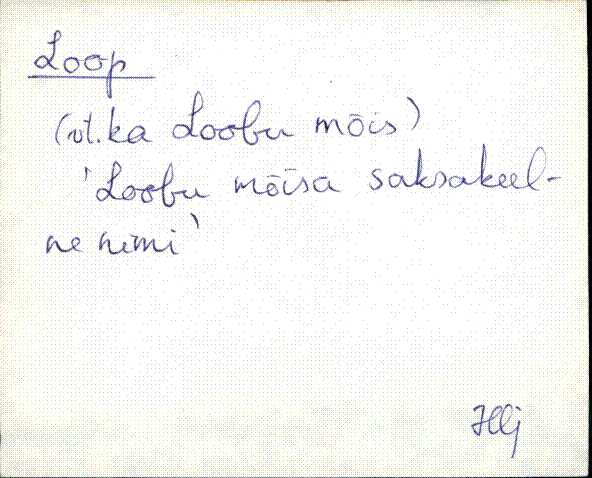 Loop
(vt. ka Loobu mõis)
'Loobu mõisa saksakeel-
ne nimi'
Hlj